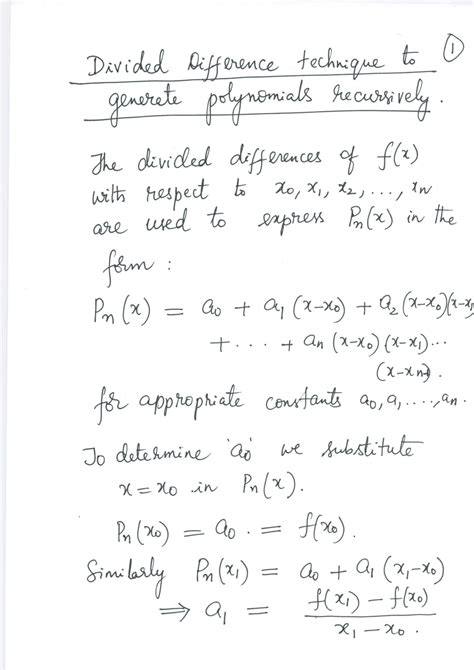 Divided Difference technique to ①
generete polynomials recursively.
The divided differences of f(x)
with respect to x₀, x₁, x₂, ..., xₙ
are used to express Pₙ(x) in the
form :
Pₙ(x) = a₀ + a₁ (x-x₀) + a₂ (x-x₀)(x-x₁)
+ ... + aₙ (x-x₀)(x-x₁)...
(x-xₙ₋₁).
for appropriate constants a₀, a₁, ...., aₙ.
To determine 'a₀' we substitute
x = x₀ in Pₙ(x).
Pₙ(x₀) = a₀ . = f(x₀).
Similarly Pₙ(x₁) = a₀ + a₁ (x₁-x₀)
⇒ a₁ = f(x₁) - f(x₀)
x₁ - x₀.